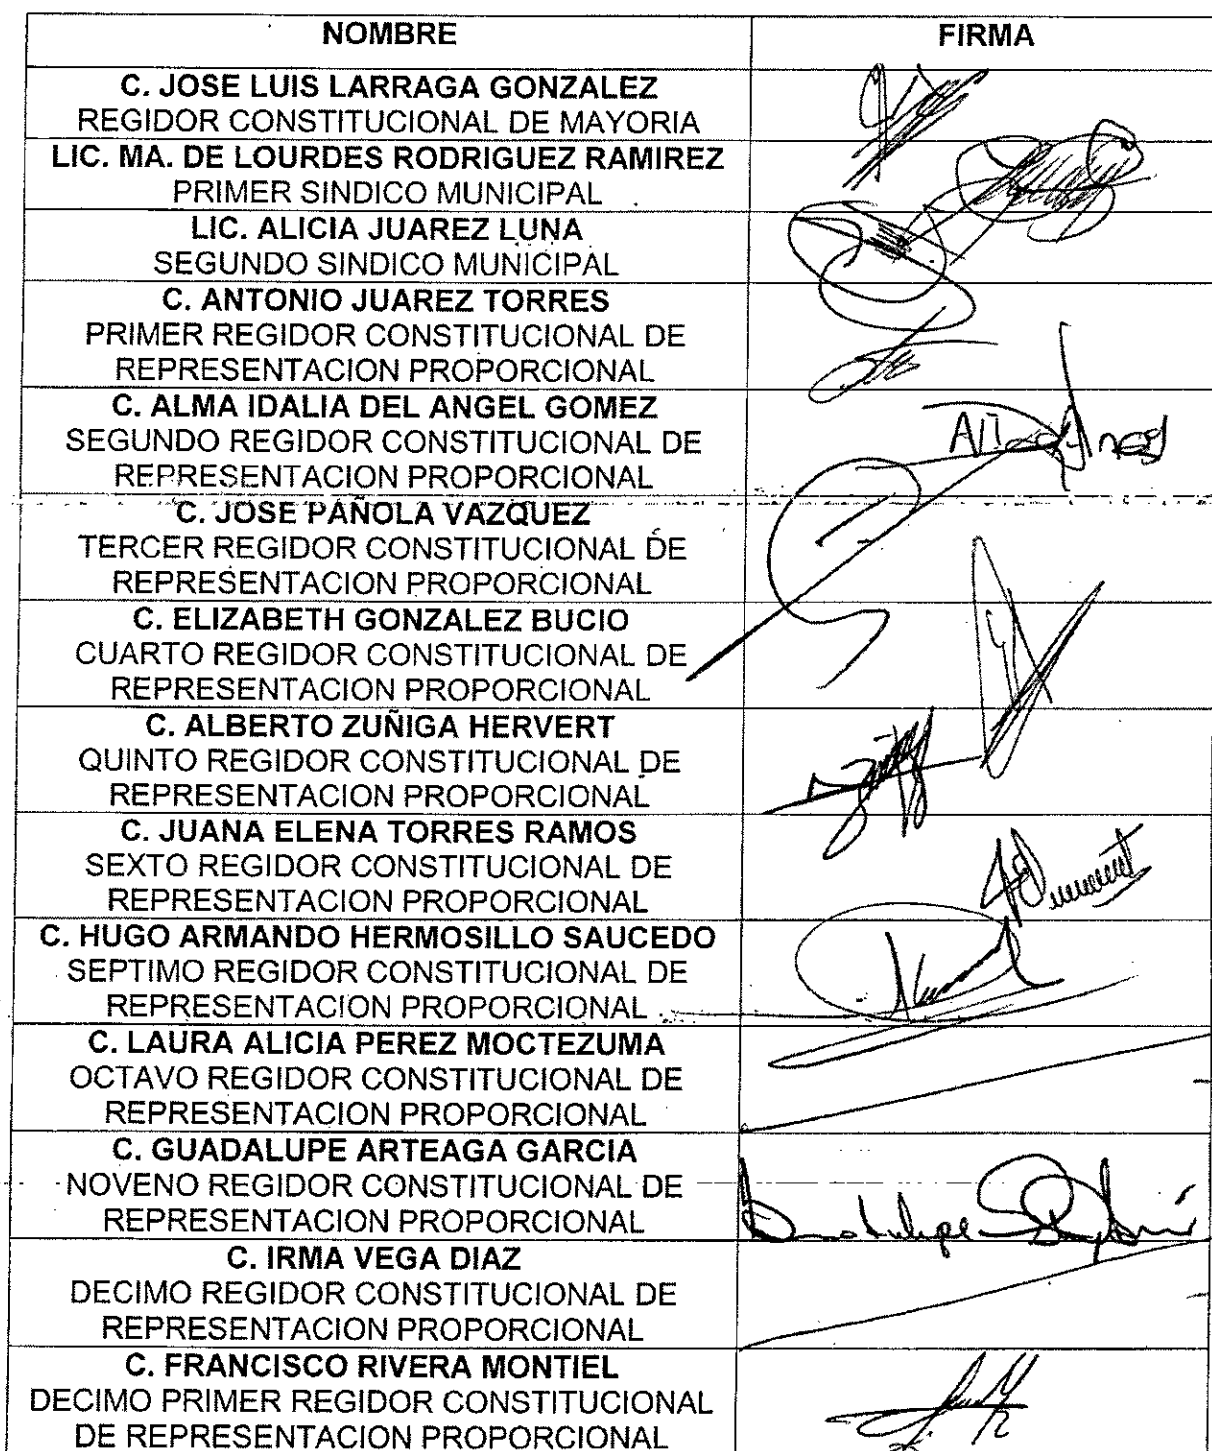 NOMBRE FIRMA
C. JOSE LUIS LARRAGA GONZALEZ
REGIDOR CONSTITUCIONAL DE MAYORIA
LIC. MA. DE LOURDES RODRIGUEZ RAMIREZ
PRIMER SINDICO MUNICIPAL
LIC. ALICIA JUAREZ LUNA
SEGUNDO SINDICO MUNICIPAL
C. ANTONIO JUAREZ TORRES
PRIMER REGIDOR CONSTITUCIONAL DE
REPRESENTACION PROPORCIONAL
C. ALMA IDALIA DEL ANGEL GOMEZ
SEGUNDO REGIDOR CONSTITUCIONAL DE
REPRESENTACION PROPORCIONAL
C. JOSE PAÑOLA VAZQUEZ
TERCER REGIDOR CONSTITUCIONAL DE
REPRESENTACION PROPORCIONAL
C. ELIZABETH GONZALEZ BUCIO
CUARTO REGIDOR CONSTITUCIONAL DE
REPRESENTACION PROPORCIONAL
C. ALBERTO ZUÑIGA HERVERT
QUINTO REGIDOR CONSTITUCIONAL DE
REPRESENTACION PROPORCIONAL
C. JUANA ELENA TORRES RAMOS
SEXTO REGIDOR CONSTITUCIONAL DE
REPRESENTACION PROPORCIONAL
C. HUGO ARMANDO HERMOSILLO SAUCEDO
SEPTIMO REGIDOR CONSTITUCIONAL DE
REPRESENTACION PROPORCIONAL
C. LAURA ALICIA PEREZ MOCTEZUMA
OCTAVO REGIDOR CONSTITUCIONAL DE
REPRESENTACION PROPORCIONAL
C. GUADALUPE ARTEAGA GARCIA
NOVENO REGIDOR CONSTITUCIONAL DE
REPRESENTACION PROPORCIONAL
C. IRMA VEGA DIAZ
DECIMO REGIDOR CONSTITUCIONAL DE
REPRESENTACION PROPORCIONAL
C. FRANCISCO RIVERA MONTIEL
DECIMO PRIMER REGIDOR CONSTITUCIONAL
DE REPRESENTACION PROPORCIONAL